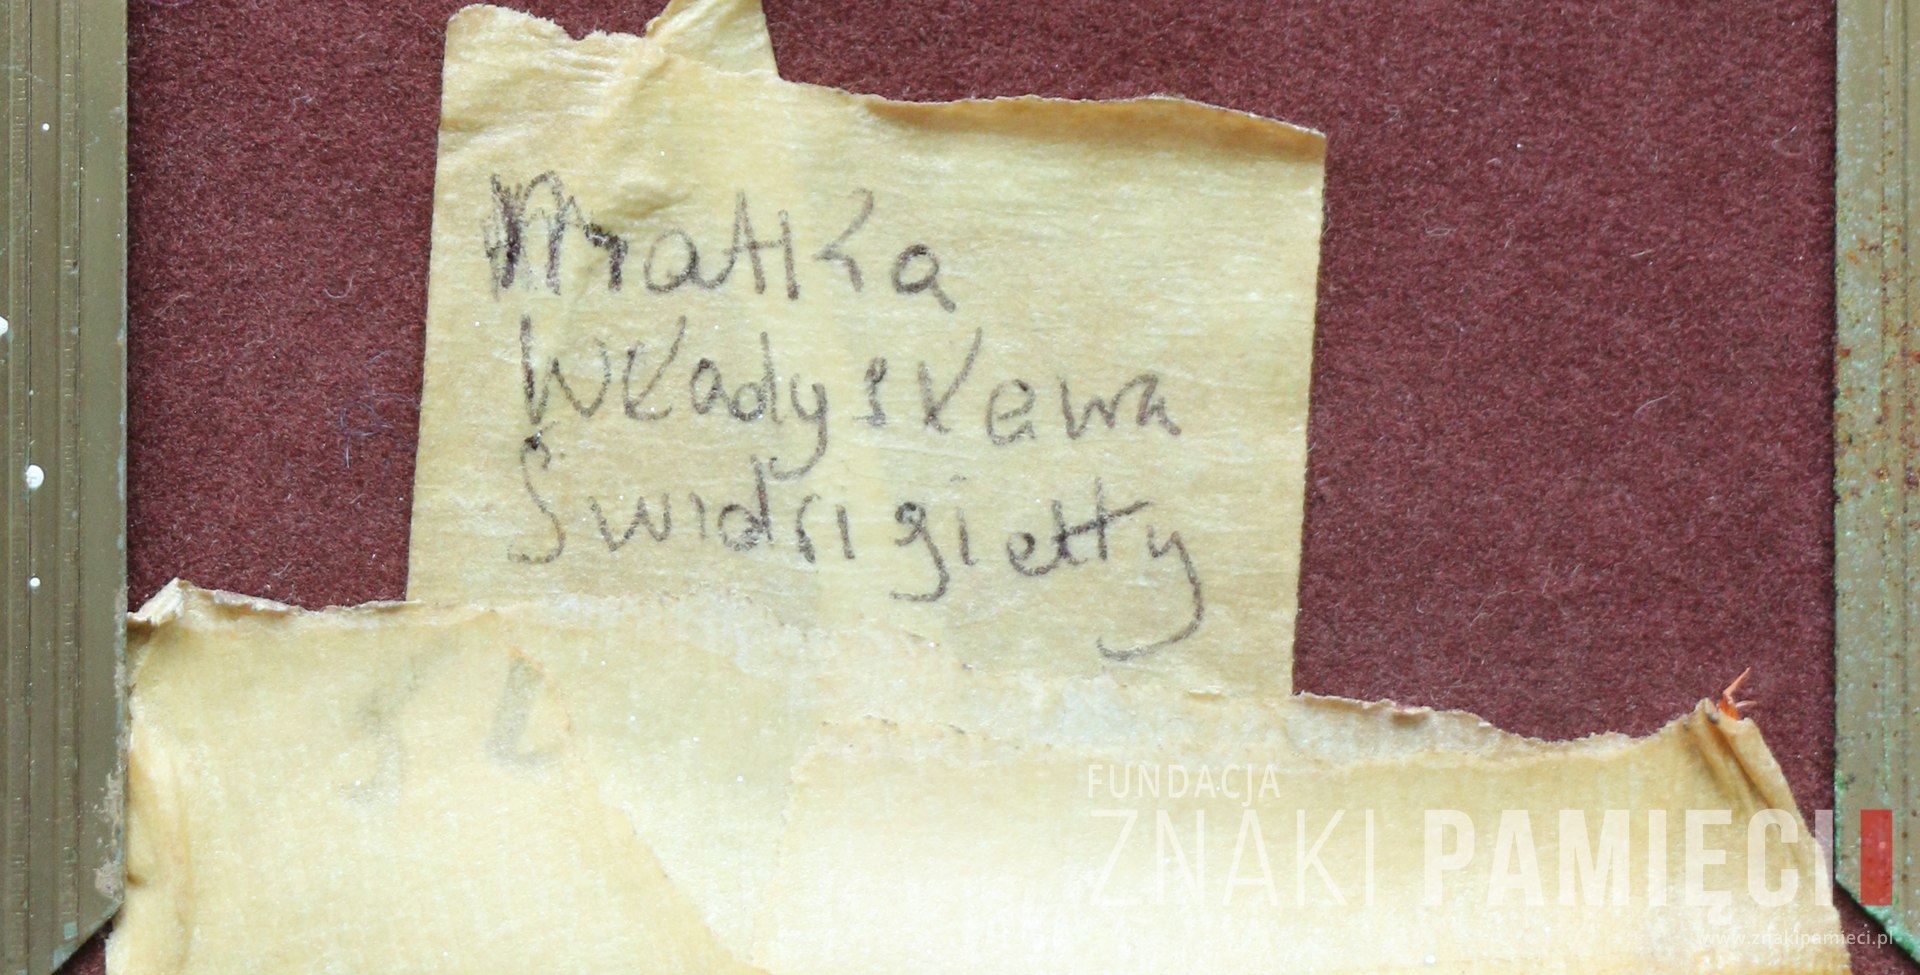 Matka
Władysława
Świdrigiełły
FUNDACJA
ZNAKI PAMIĘCI
www.znakipamieci.pl